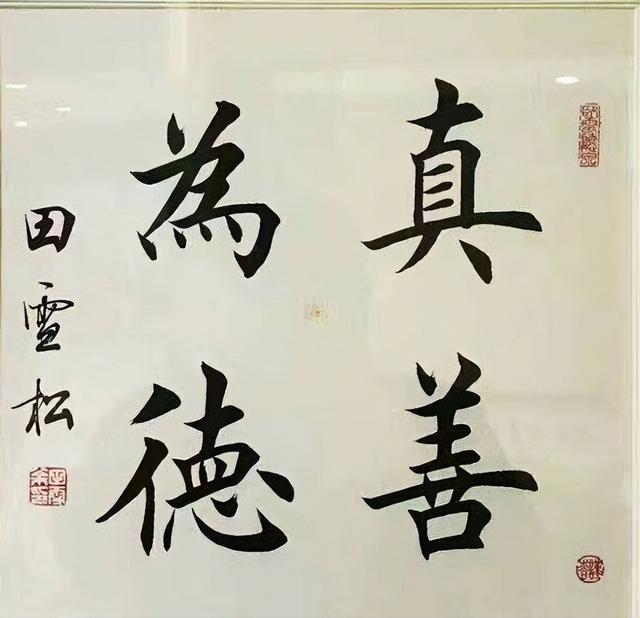 真善
為德
田雪松